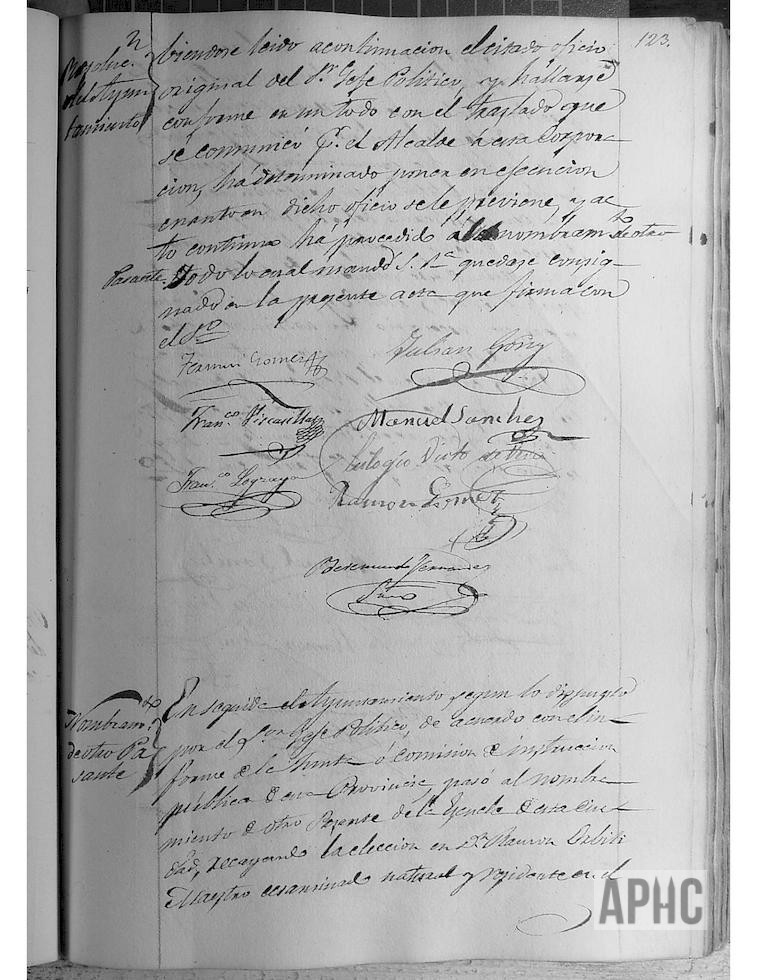 123.
Resoluc.n
del Ayun
tamiento
biendose leido acontinuacion el citado oficio
original del Sr. Gefe Politico, y hállarse
conforme en un todo con el traslado que
se comunicó p.r el Alcalde á esta Corpora-
cion, há determinado poner en ejecucion
cuanto en dicho oficio se le previene, y ac
to continuo há procedido al nombram.to de otro
Pasante. Todo lo cual mandó S. S.a quedase consig-
nado en la presente acta que firma con
el S.rio
Fermin Gomez
Julian Goñy
Fran.co Vizcasillas
Manuel Sanchez
Eulogio
Fran.co Loyzaga
Ramon Gomez
Beremundo Fernandez
Srio
Nombram.to
de otro Pa
sante
En seguida el Ayuntamiento segun lo dispuesto
por el S.or Gefe Politico, de acuerdo con el in-
forme de la Junta ó Comision de instruccion
pública de esta Provincia, pasó al nombra-
miento de otro Pasante de la Escuela de esta Ciu-
dad, recayendo la eleccion en D.n Ramon
Maestro ecsaminado natural y residente en el
APHC